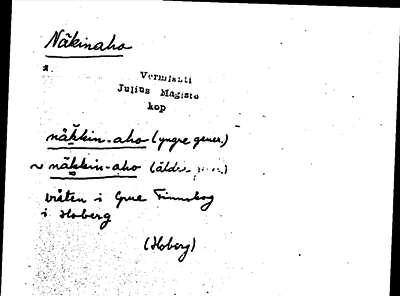 Näkinaho
Vermlanti
Julius Mägiste
kop
näkkin-aho (yngre gener.)
~ näkkin-aho (äldre gener.)
i Grue Finnskog
i Hoberg
(Hoberg)